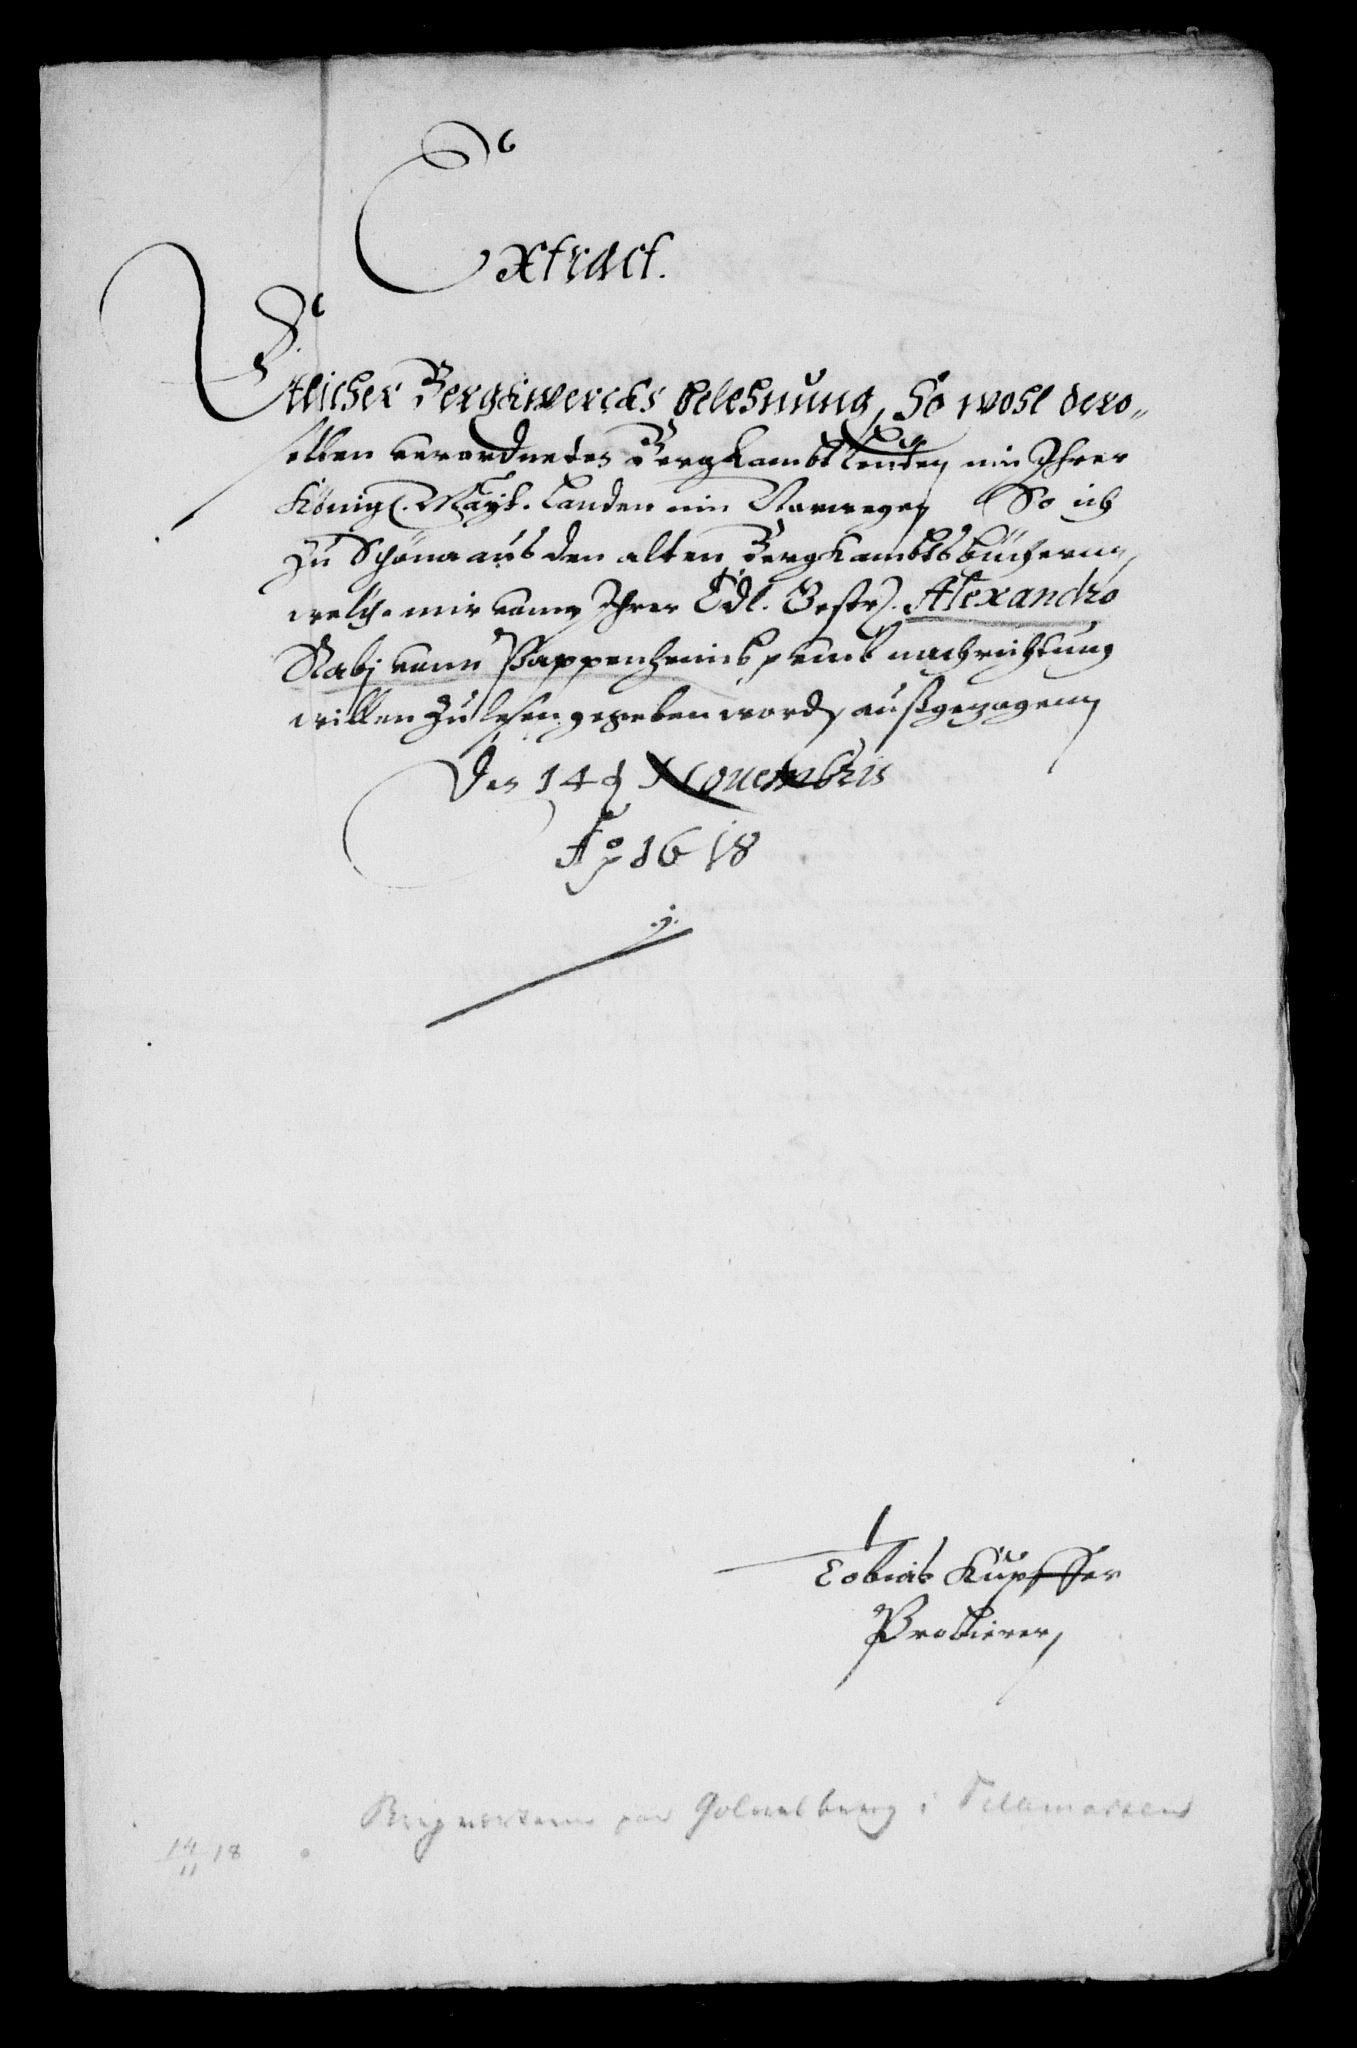 Extract.
Etlicher Bergkwercks belehnung, So wohl dero„
selben verordneten Bergkambtleuten, inn Ihrer
Königl. Mayt. Landen inn Norwegen So ich
zu Schöna aus den alten Bergkambtsbüchernn,
welche mir vonn Ihrer Edl. Gestr. Alexandro
Rabj vonn Pappenheimb, umb nachrichtung
willen zu lesen gegeben worden, außgezogenn
Den 14 Nouembris
Ao 1618
Tobias Kupffer
Probierer,
Bergverkerne paa Golmsberg i Tellemarken
14/11 18